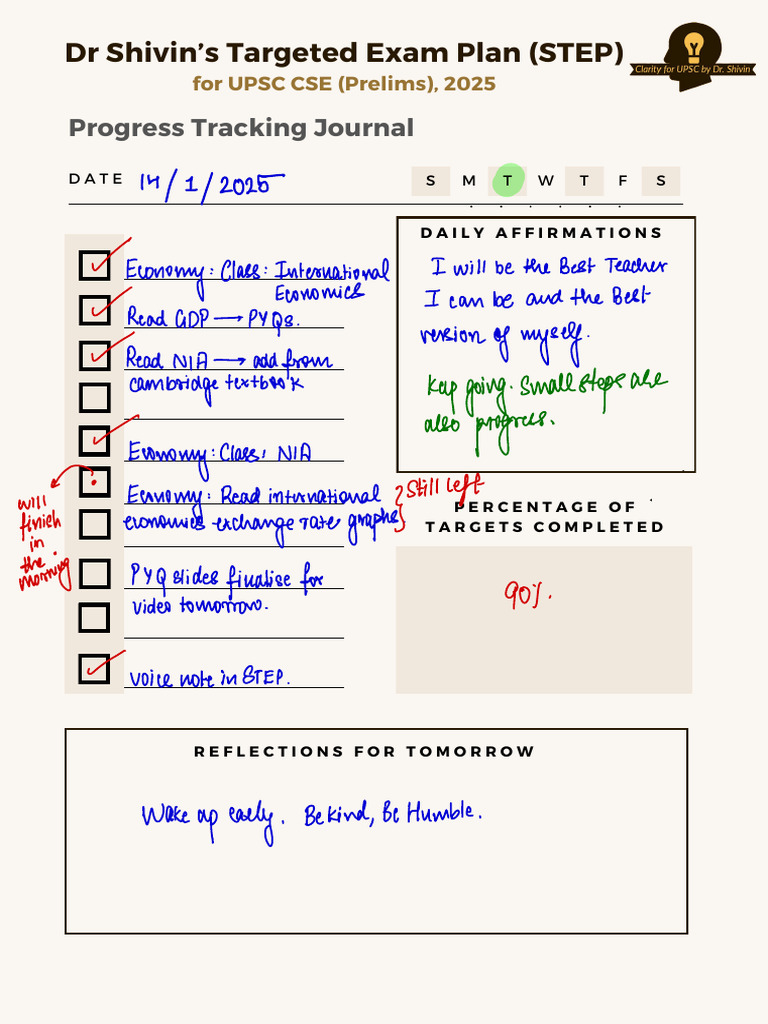 Dr Shivin's Targeted Exam Plan (STEP)
for UPSC CSE (Prelims), 2025
Clarity for UPSC by Dr. Shivin
Progress Tracking Journal
DATE 14/1/2025
S M T W T F S
Economy: Class: International
Economics
Read GDP → PYQs.
Read NIA → add from
cambridge textbook
Economy: Class: NIA
Economy: Read international
economics exchange rate graphs
Still left
will
finish
in
the
morning
PYQ slides finalise for
video tomorrow.
voice note in STEP.
DAILY AFFIRMATIONS
I will be the Best Teacher
I can be and the Best
version of myself.
Keep going. Small steps are
also progress.
PERCENTAGE OF
TARGETS COMPLETED
90%.
REFLECTIONS FOR TOMORROW
Wake up early. Be kind, Be Humble.